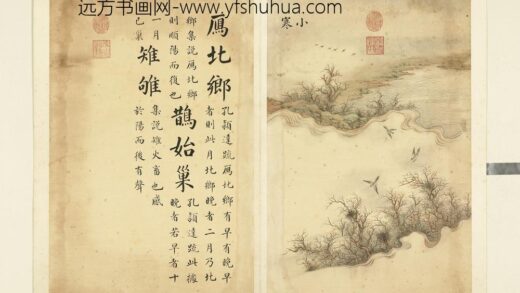 远方书画网-www.yfshuhua.com
小寒
鴈北鄉
孔頴達疏鴈北鄉有早有晚早
者則此月北鄉晚者二月乃北
鄉集説鴈北鄉
則順陽而復也
鵲始巢
孔頴達疏此據
晚者若早者十
一月
已巢
雉雊
集説雉火畜也感
於陽而後有聲